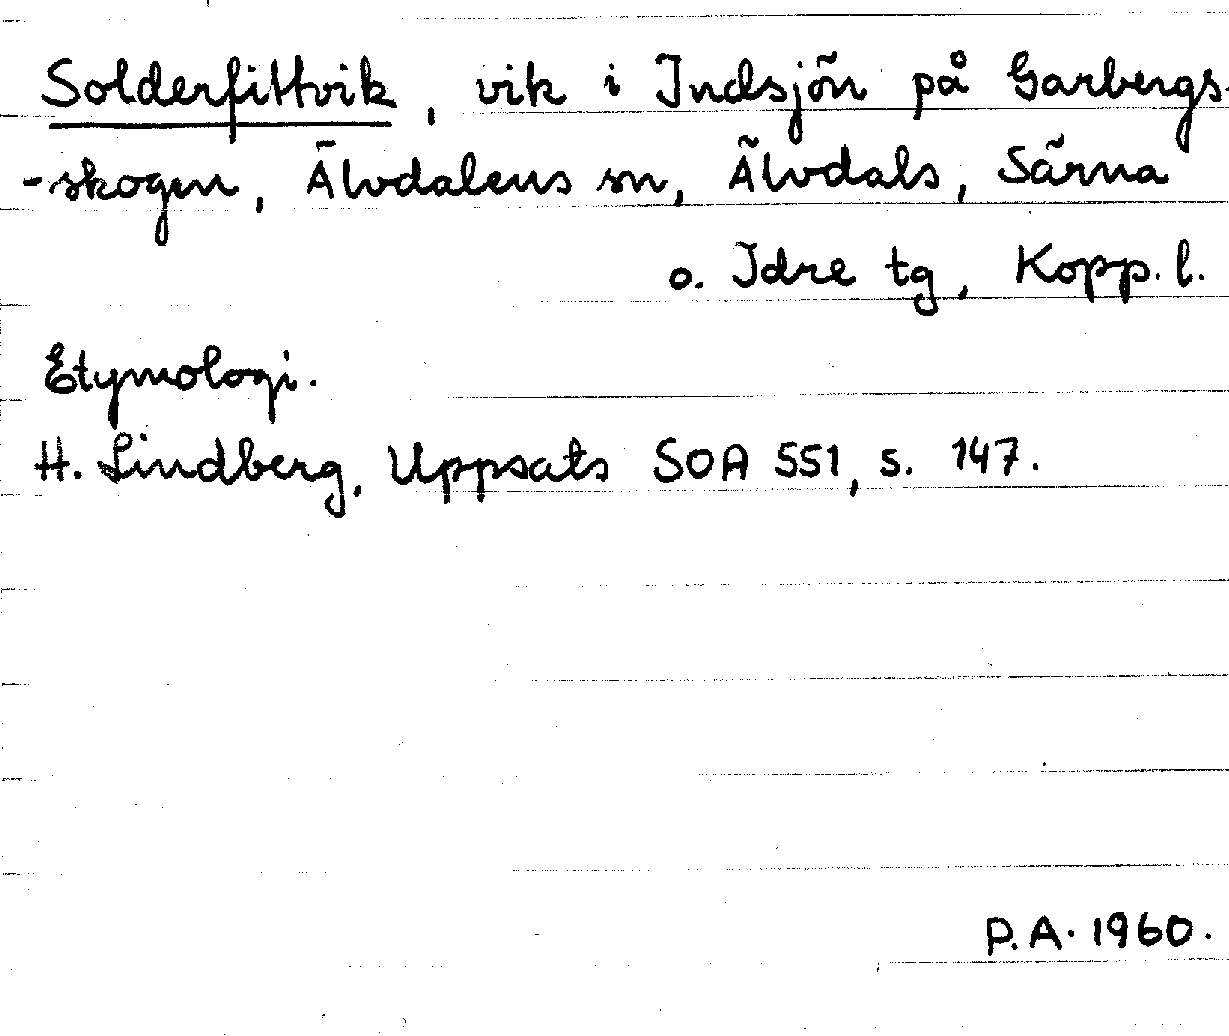 Solderfittvik, vik i Indsjön på Garbergs-
-skogen, Älvdalens sn, Älvdals, Särna
o. Idre tg, Kopp. l.
Etymologi.
H. Lindberg, Uppsats SOA 551, s. 147.
P.A. 1960.